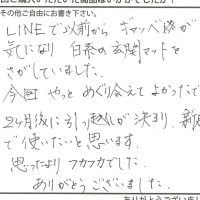 その他ご自由にお書き下さい。
LINEで以前から ギャッベ柄が
気になり 白系の玄関マットを
さがしていました。
今回 やっと めぐり会えて よかったで
2ヶ月後に 引っ越しが 決まり、新居
で 使いたいと思います。
思ったより フカフカでした。
ありがとうございました。